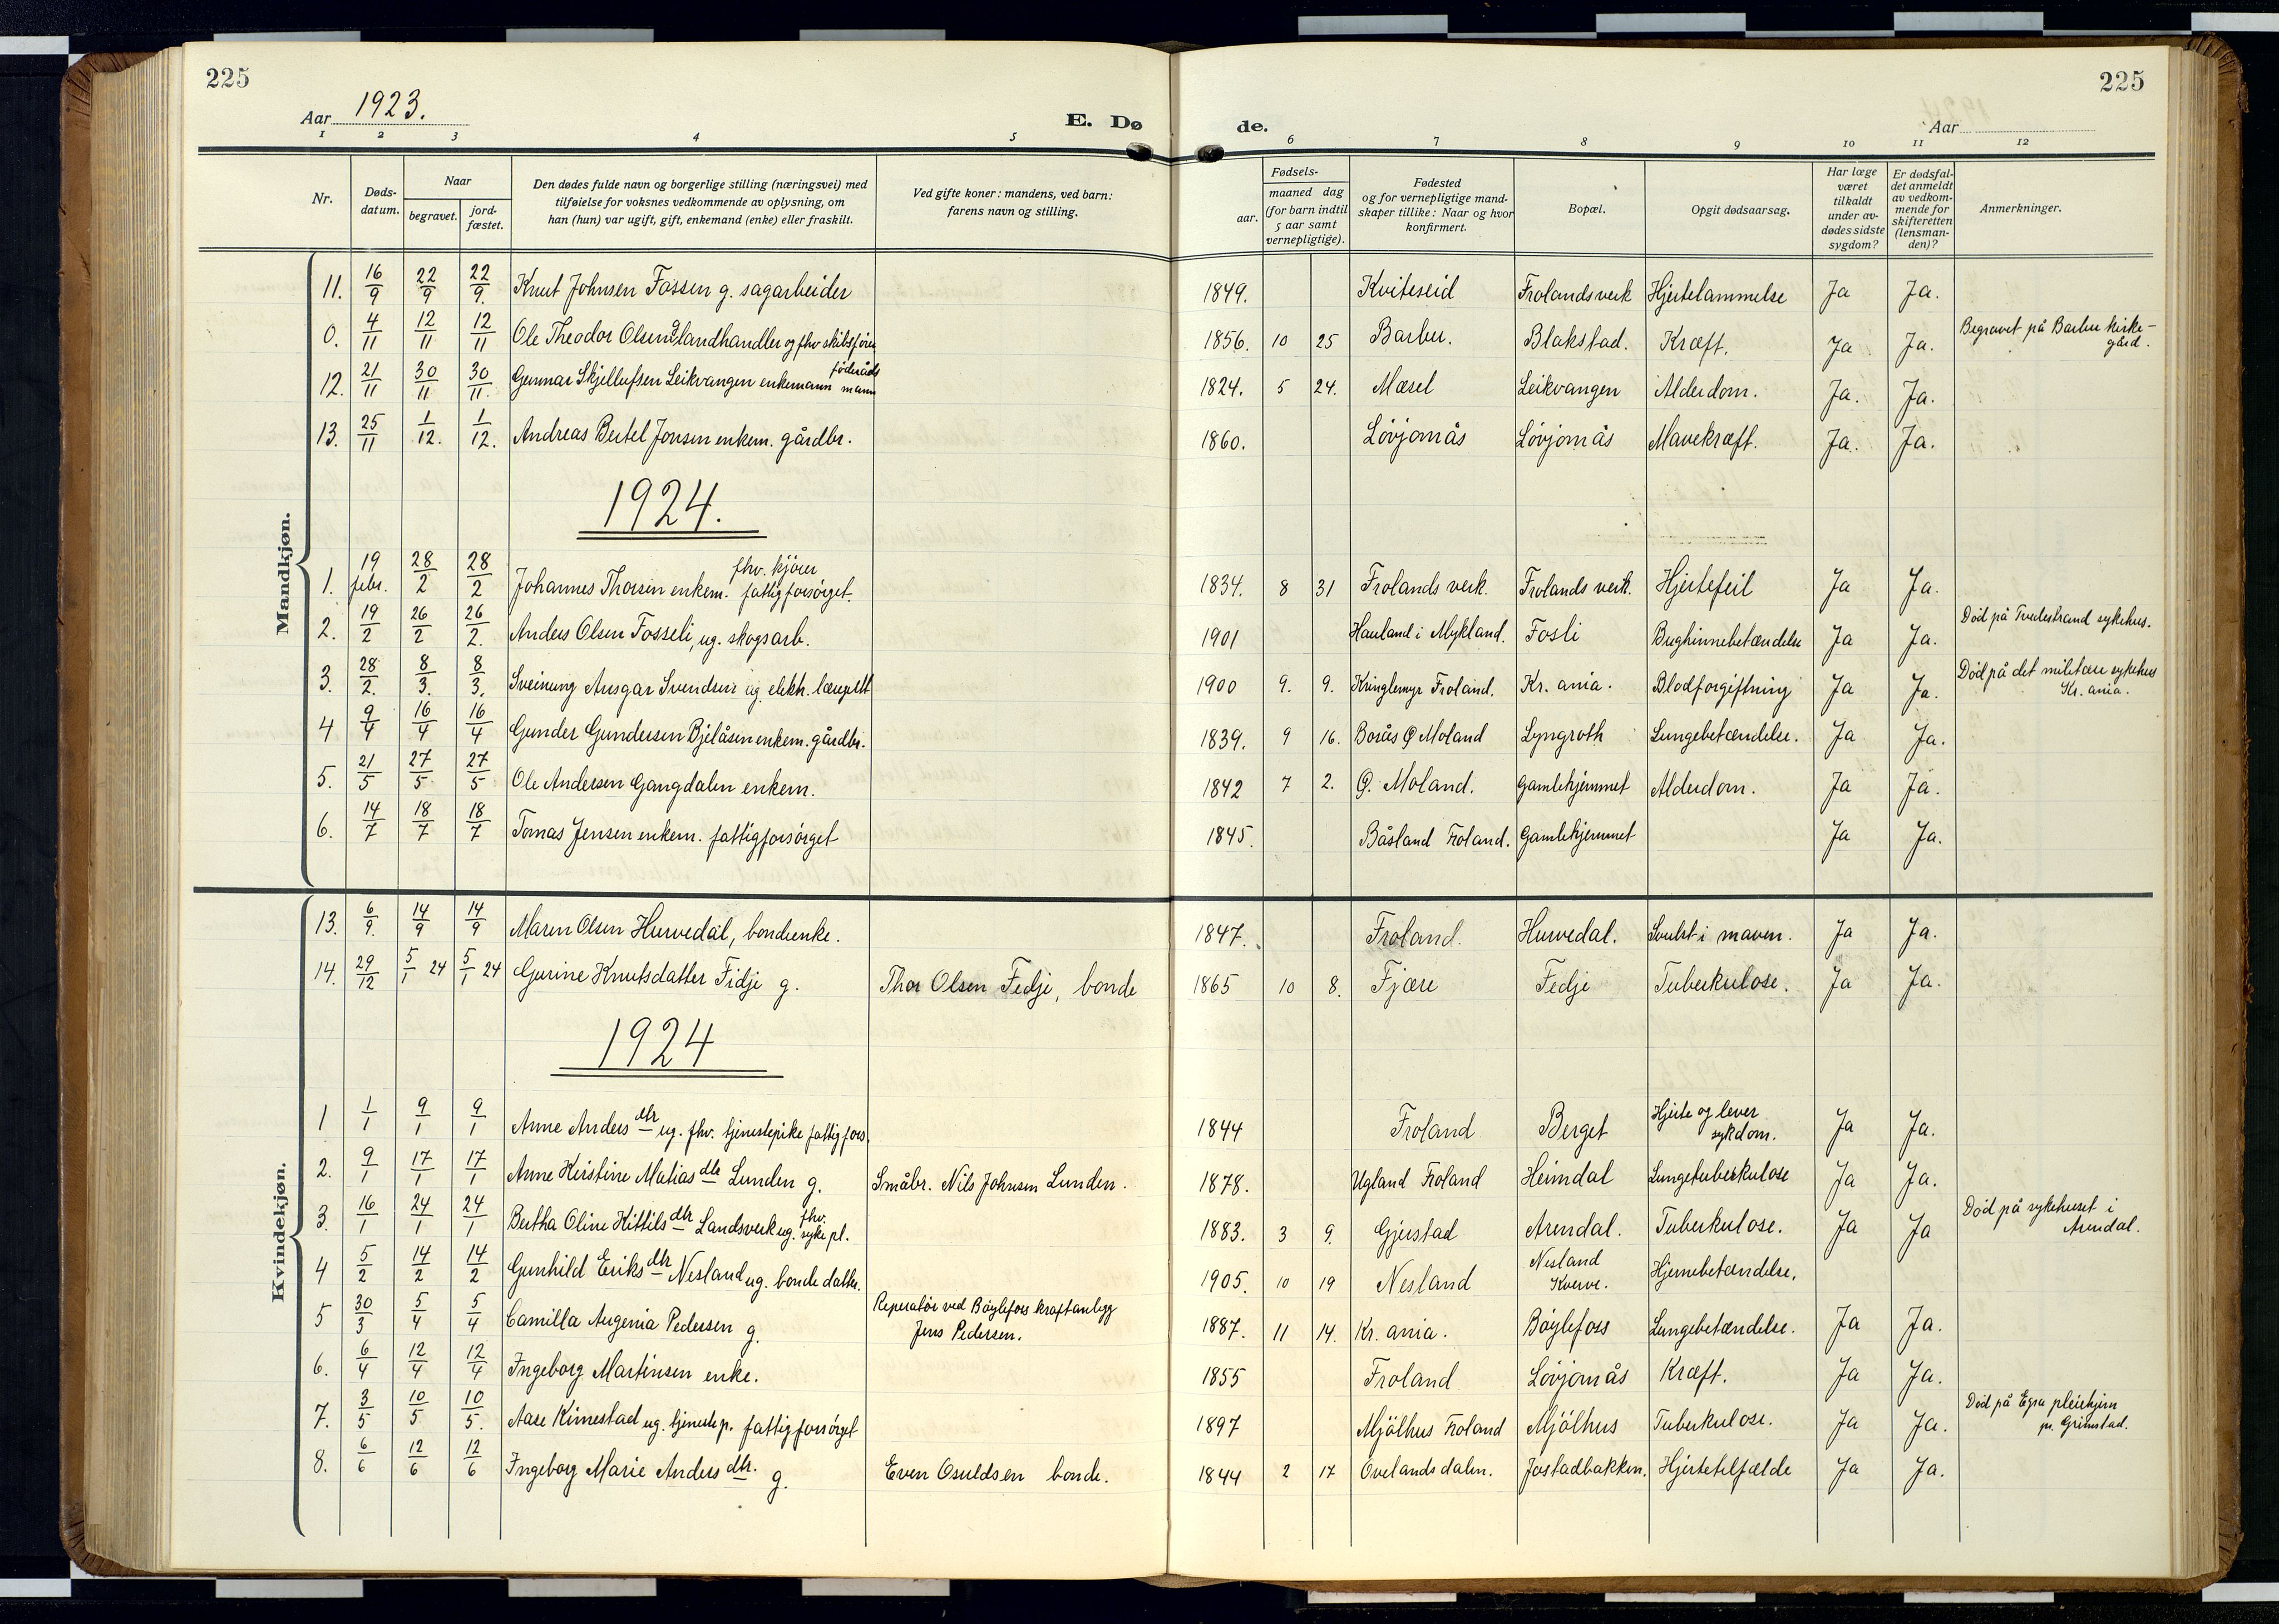 225
225
Aar 1923.
E. Dø
de.
Aar
1 2 3 4 5 6 7 8 9 10 11 12
Nr.
Døds-
datum.
Naar
begravet.
jord-
fæstet.
Den dødes fulde navn og borgerlige stilling (næringsvei) med
tilføielse for voksnes vedkommende av oplysning, om
han (hun) var ugift, gift, enkemand (enke) eller fraskilt.
Ved gifte koner: mandens, ved barn:
farens navn og stilling.
Fødsels-
aar.
maaned dag
(for barn indtil
5 aar samt
vernepligtige).
Fødested
og for vernepligtige mand-
skaper tillike: Naar og hvor
konfirmert.
Bopæl.
Opgit dødsaarsag.
Har læge
været
tilkaldt
under av-
dødes sidste
sygdom?
Er dødsfal-
det anmeldt
av vedkom-
mende for
skifteretten
(lensman-
den)?
Anmerkninger.
Mandkjøn.
11. 16/9 22/9 22/9. Knut Johnsen Fossen g. sagarbeider 1849. Kviteseid Frolandsverk Hjertelammelse Ja Ja.
0. 4/11 12/11 12/11 Ole Theodor Olsen g. landhandler og fhv skibsfører 1856. 10 25 Barbu. Blakstad. Kræft. Ja Ja. Begravet på Barbu kirke-
gård.
12. 21/11 30/11 30/11. Gunnar Skjellufsen Leikvangen enkemann föderåds
mann 1824. 5 24. Mæsel Leikvangen Alderdom. Ja. Ja.
13. 25/11 1/12. 1/12. Andreas Bertel Jonsen enkem. gårdbr. 1860. Lövjomås Lövjomås Mavekræft. Ja. Ja.
1924.
1. 19 febr. 28/2 28/2 Johannes Thorsen enkem. fhv. kjörer
fattigforsörget. 1834. 8 31 Frolands verk. Frolands verk. Hjertefeil Ja Ja.
2. 19/2 26/2 26/2. Anders Olsen Fosseli, ug. skogsarb. 1901 Hauland i Mykland. Fosli Bughinnebetændelse Ja Ja. Död på Tvedestrand sykehus.
3. 28/2. 8/3. 8/3. Sveinung Ansgar Svendsen ug elekt. 1900 9. 9. Kringlemyr Froland. Kr. ania. Blodforgiftning Ja Ja. Död på det militære sykehus
Kr. ania.
4 9/4 16/4 16/4 Gunder Gundersen Bjelåsen enkem. gårdbr. 1839. 9 16. Borås Ø Moland Lyngroth Lungebetændelse. Ja Ja.
5. 21/5 27/5 27/5 Ole Andersen Gangdalen enkem. 1842 7 2. Ø. Moland. Gamlehjemmet Alderdom. Ja Ja.
6. 14/7 18/7 18/7 Tomas Jensen enkem. fattigforsörget 1845. Båsland Froland. Gamlehjemmet Ja Ja.
Kvindekjøn.
13. 6/9. 14/9 14/9 Maren Olsen Hurvedal, bondeenke. 1847. Froland. Hurvedal. Svulst i maven. Ja Ja.
14. 29/12 5/1 24 5/1 24 Gurine Knutsdatter Fidje g. Thor Olsen Fedje, bonde 1865 10 8. Fjære Fedje Tuberkulose. Ja Ja.
1924
1 1/1 9/1 9/1 Anne Anders dtr ug. fhv. tjenestepike fattigfors. 1844 Froland Berget Hjerte og lever
sykdom. Ja Ja.
2. 9/1 17/1 17/1 Anne Kirstine Matias dtr Lunden g. Småbr. Nils Johnsen Lunden. 1878. Ugland Froland Heimdal Lungetuberkulose Ja Ja.
3. 16/1 24/1 24/1 Bertha Oline Kittils dtr Landsverk ug. fhv.
sykepl. 1883. 3 9. Gjerstad Arendal. Tuberkulose. Ja Ja Död på sykehuset i
Arendal.
4 5/2 14/2 14/2 Gunhild Eriks dtr Nesland ug. bondedatter. 1905. 10 19 Nesland Nesland
Kverve. Hjernebetændelse.
5 30/3 5/4 5/4 Camilla Augenia Pedersen g. Reperatör ved Böylefoss kraftanlegg
Jens Pedersen. 1887. 11 14. Kr. ania. Böylefoss Lungebetændelse. Ja Ja.
6. 6/4 12/4 12/4 Ingeborg Martinsen enke. 1855 Froland Lövjomås Kræft. Ja Ja.
7. 3/5 10/5 10/5. Aase Kimestad ug. tjenestep. fattigforsörget 1897 Mjölhus Froland Mjölhus Tuberkulose. Ja Ja. Död på pleiehjem
pr. Grimstad.
8. 6/6 12/6 12/6 Ingeborg Marie Anders dtr. g. Even Osuldsen bonde. 1844 2 17 Ovelandsdalen. Jostadbakken. Hjertetilfælde Ja Ja.